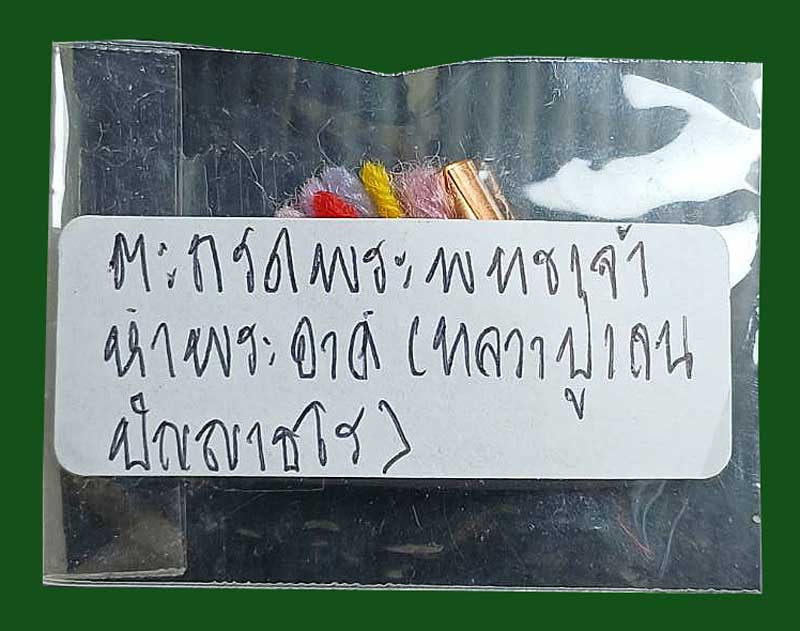 ตะกรุดพระพุทธเจ้า
ห้ามพระองค์ (หลวงปู่เลน
ปัญญาธโร)